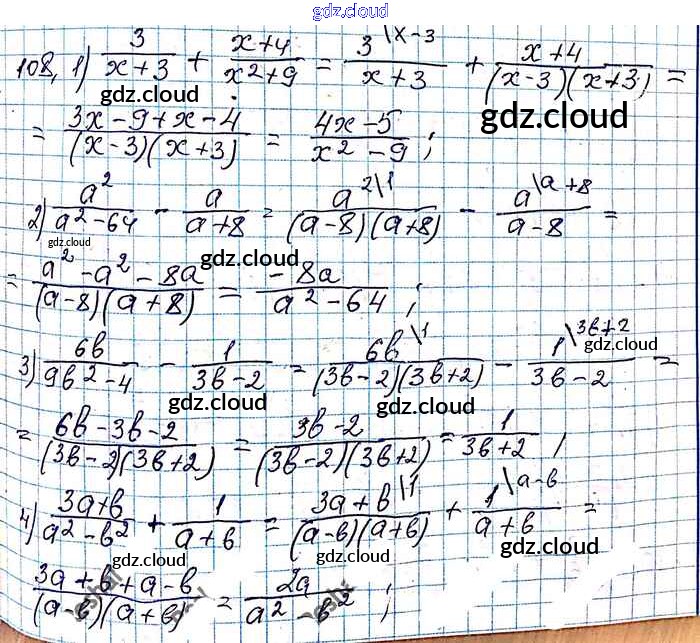 gdz.cloud
108, 1) 3/(x+3) + (x+4)/(x²+9) = 3\x-3/(x+3) + (x+4)/((x-3)(x+3)) =
gdz.cloud gdz.cloud
= (3x-9+x-4)/((x-3)(x+3)) = (4x-5)/(x²-9);
2) a²/(a²-64) - a/(a+8) = a²\1/((a-8)(a+8)) - a\a+8/(a-8) =
gdz.cloud gdz.cloud gdz.cloud
= (a²-a²-8a)/((a-8)(a+8)) = -8a/(a²-64);
gdz.cloud
3) 6b/(9b²-4) - 1/(3b-2) = 6b\1/((3b-2)(3b+2)) - 1\3b+2/(3b-2) =
gdz.cloud gdz.cloud gdz.cloud
= (6b-3b-2)/((3b-2)(3b+2)) = (3b-2)/((3b-2)(3b+2)) = 1/(3b+2),
4) (3a+b)/(a²-b²) + 1/(a+b) = (3a+b\1)/((a-b)(a+b)) + 1\a-b/(a+b) =
gdz.cloud gdz.cloud gdz.cloud
(3a+b+a-b)/((a-b)(a+b)) = 2a/(a²-b²);